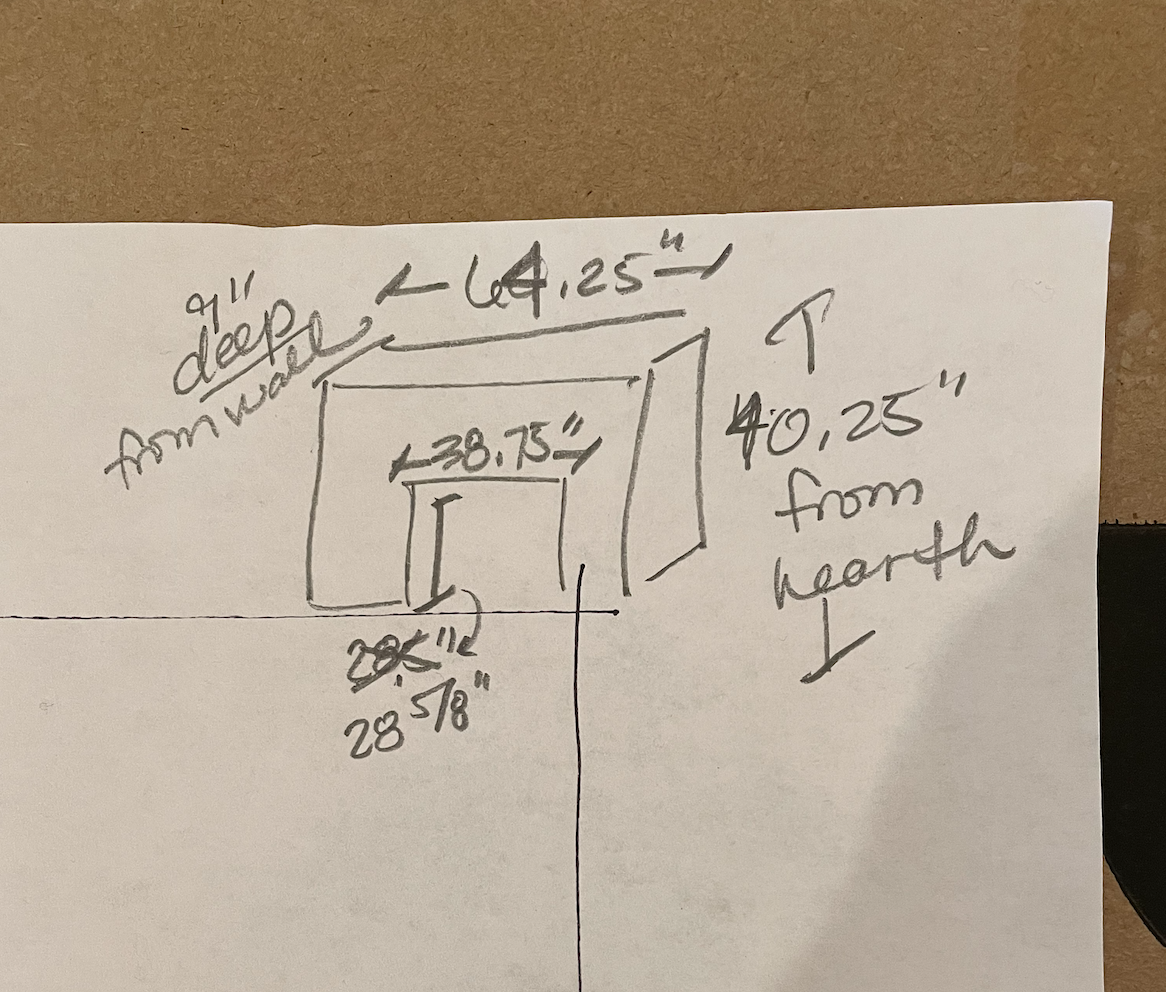 64.25"
9"
deep
from wall
38.75"
40.25"
from
hearth
28.5"
28 5/8"